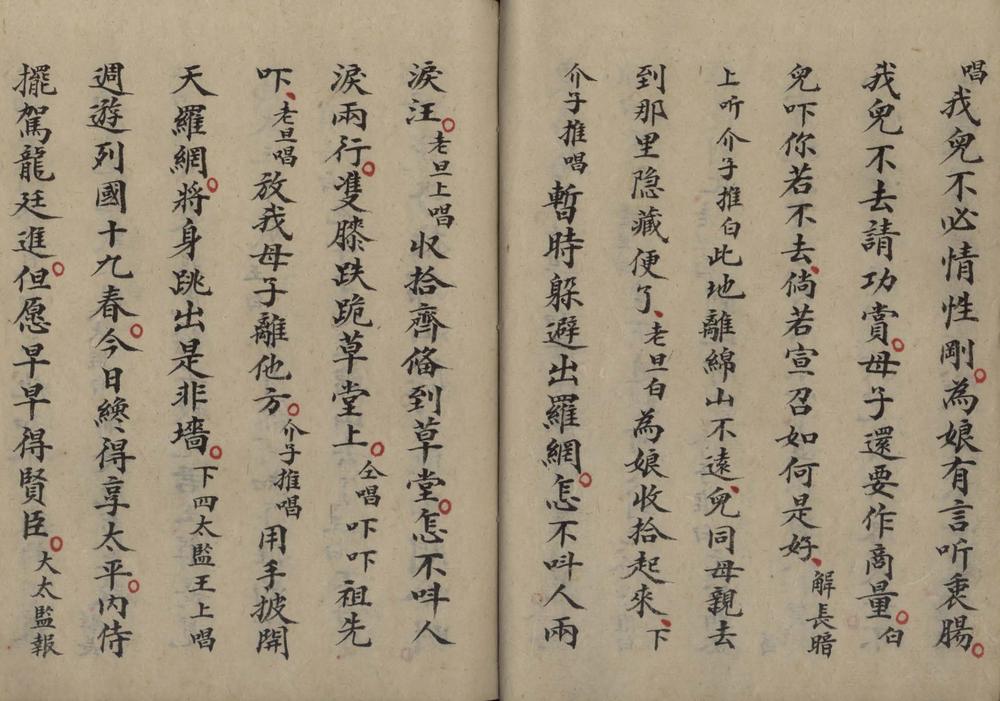 唱我兒不必情性剛為娘有言听衷腸
我兒不去請功賞母子還要作商量白
兒吓你若不去倘若宣召如何是好解長暗
上听介子推白此地離綿山不遠兒同母親去
到那里隐藏便了老旦白為娘收拾起來下
介子推唱暫時躲避出羅網怎不呌人兩
淚汪老旦上唱收拾齊俻到草堂怎不呌人
淚兩行雙膝跌跪草堂上仝唱吓吓祖先
吓老旦唱放我母子離他方介子推唱用手披開
天羅網將身跳出是非墻下四太監王上唱
週遊列國十九春今日纔得享太平內侍
擺駕龍廷進但愿早早得賢臣大太監報